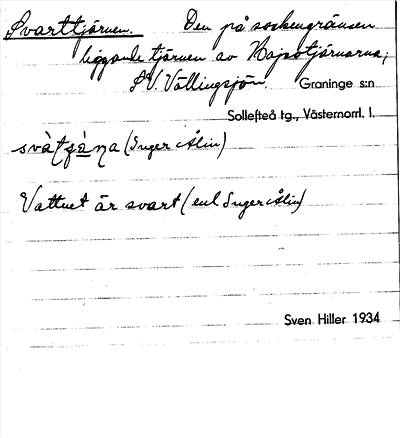 Svarttjärnen. Den på sockengränsen
liggande tjärnen av Hajsotjärnarna,
SV. Vällingsjön. Graninge s:n
Sollefteå tg., Västernorrl. l.
(Inger Ålin)
Vattnet är svart (enl Inger Ålin)
Sven Hiller 1934